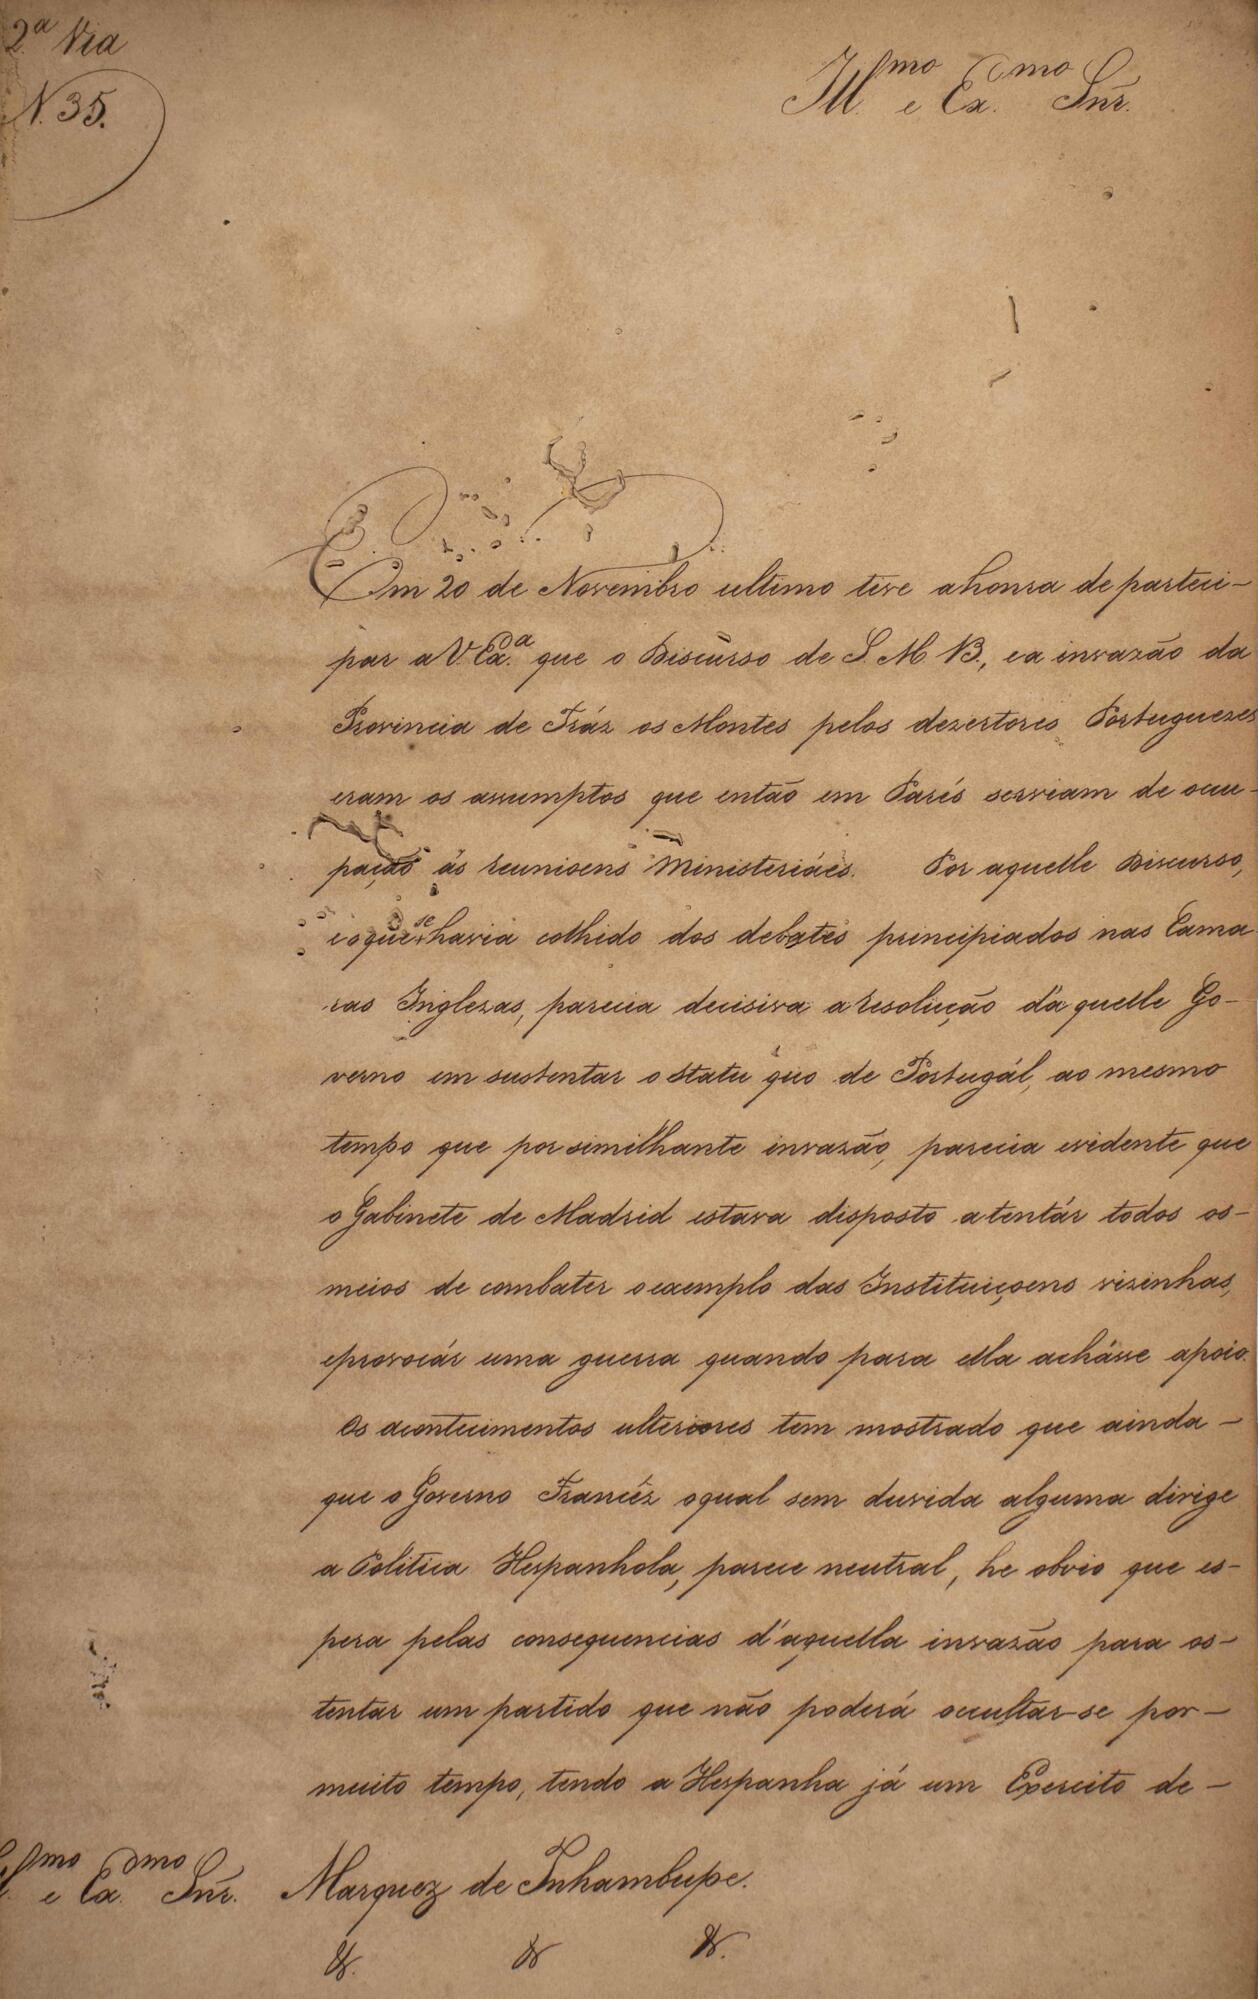 2ª Via
N. 35.
Illmo e Exmo Snr.
Em 20 de Novembro ultimo tive a honra de parteci-
par a V. Exª que o Discurso de S. M. B., e a invazão da
Provincia de Tráz os Montes pelos dezertores Portuguezes
eram os assumptos que então em Paris serviam de occu-
pação ás reunioens Ministeriáes. Por aquelle Discurso,
e o que se havia colhido dos debates principiados nas Cama
ras Inglezas, parecia decisiva a resolução d'aquelle Go-
verno em sustentar o statu quo de Portugál, ao mesmo
tempo que por similhante invazão, parecia evidente que
o Gabinete de Madrid estava disposto a tentár todos os-
meios de combater o exemplo das Instituiçoens vizinhas,
e provocár uma guerra quando para ella achásse apoio.
Os acontecimentos ulteriores tem mostrado que ainda-
que o Governo Francêz o qual sem duvida alguma dirige
a Politica Hespanhola, parece neutral, he obvio que es-
pera pelas consequencias d'aquella invazão para os-
tentar um partido que não poderá occultar-se por-
muito tempo, tendo a Hespanha já um Exercito de-
Illmo e Exmo Snr. Marquez de Inhambupe.
&. & &.